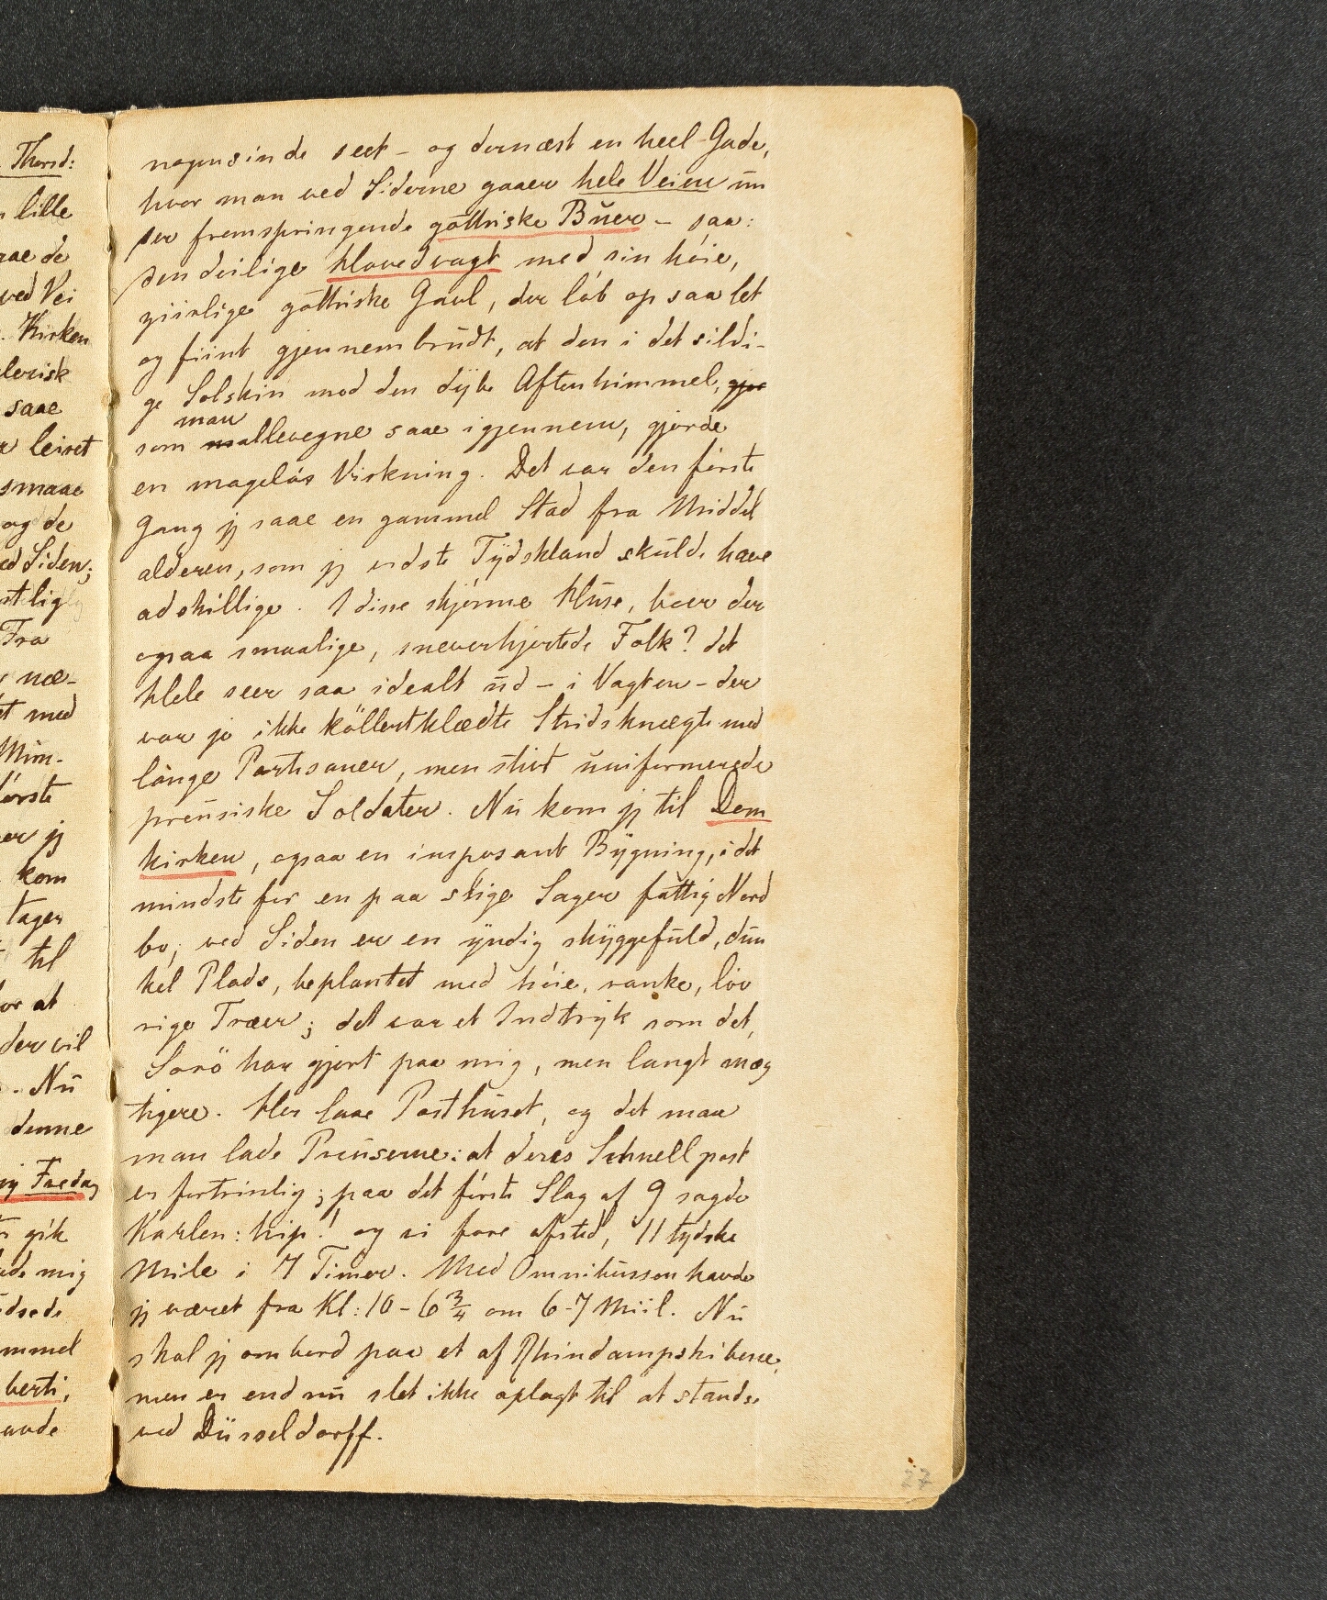 Thorsd:
lille
de
ved Vei
Kirken
saae
leiret
smaae
og de
ed Siden;
Fra
næ-
med
Mün-
første
jeg
kom
tager
til
at
der vil
Nu
denne
Fredag
gik
mig
nogensinde seet – og dernæst en heel Gade,
hvor man ved Siderne gaaer hele Veien un
der fremspringende gothiske Buer – saa:
den deilige Hovedvagt med sin høie,
ziirlige gothiske Gavl, der løb op saa let
og fiint gjennembrudt, at den i det sildi-
ge Solskin mod den dybe Aftenhimmel, gjor
man
som allevegne saae igjennem, gjorde
en mageløs Virkning. Det var den første
Gang jeg saae en gammel Stad fra Middel
alderen, som jeg vidste Tydskland skulde have
adskillige. I disse skjønne Huse, boer der
ogsaa smaalige, sneverhjertede Folk? det
Hele seer saa idealt ud – i Vagten – der
var jo ikke köllertklædte Stridsknægte med
lange Partisaner, men stivt uniformerede
preusiske Soldater. Nu kom jeg til Dom
kirken, ogsaa en imposant Bygning, i det
mindste for en paa slige Sager fattig Nord
bo; ved Siden er en yndig skyggefuld, dun
kel Plads, beplantet med høie, ranke, løv
rige Træer; det var et Indtryk som det,
Sorö har gjort paa mig, men langt mæg
tigere. Her laae Posthuset, og det maa
man lade Preuserne: at deres Schnellpost
er fortrinlig; paa det første Slag af 9 sagde
Karlen: hip! og vi fore afsted, 11 tydske
Mile i 7 Timer. Med Omnibussen havde
jeg været fra Kl: 10 – 6 3/4 om 6-7 Miil. Nu
skal jeg ombord paa et af Rhindampskibene,
men er endnu slet ikke oplagt til at standse
ved Düsseldorff.
27